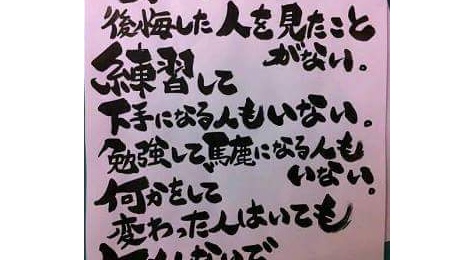 後悔した人を見たこと
がない。
練習して
下手になる人もいない。
勉強して馬鹿になる人も
いない。
何かをして
変わった人はいても